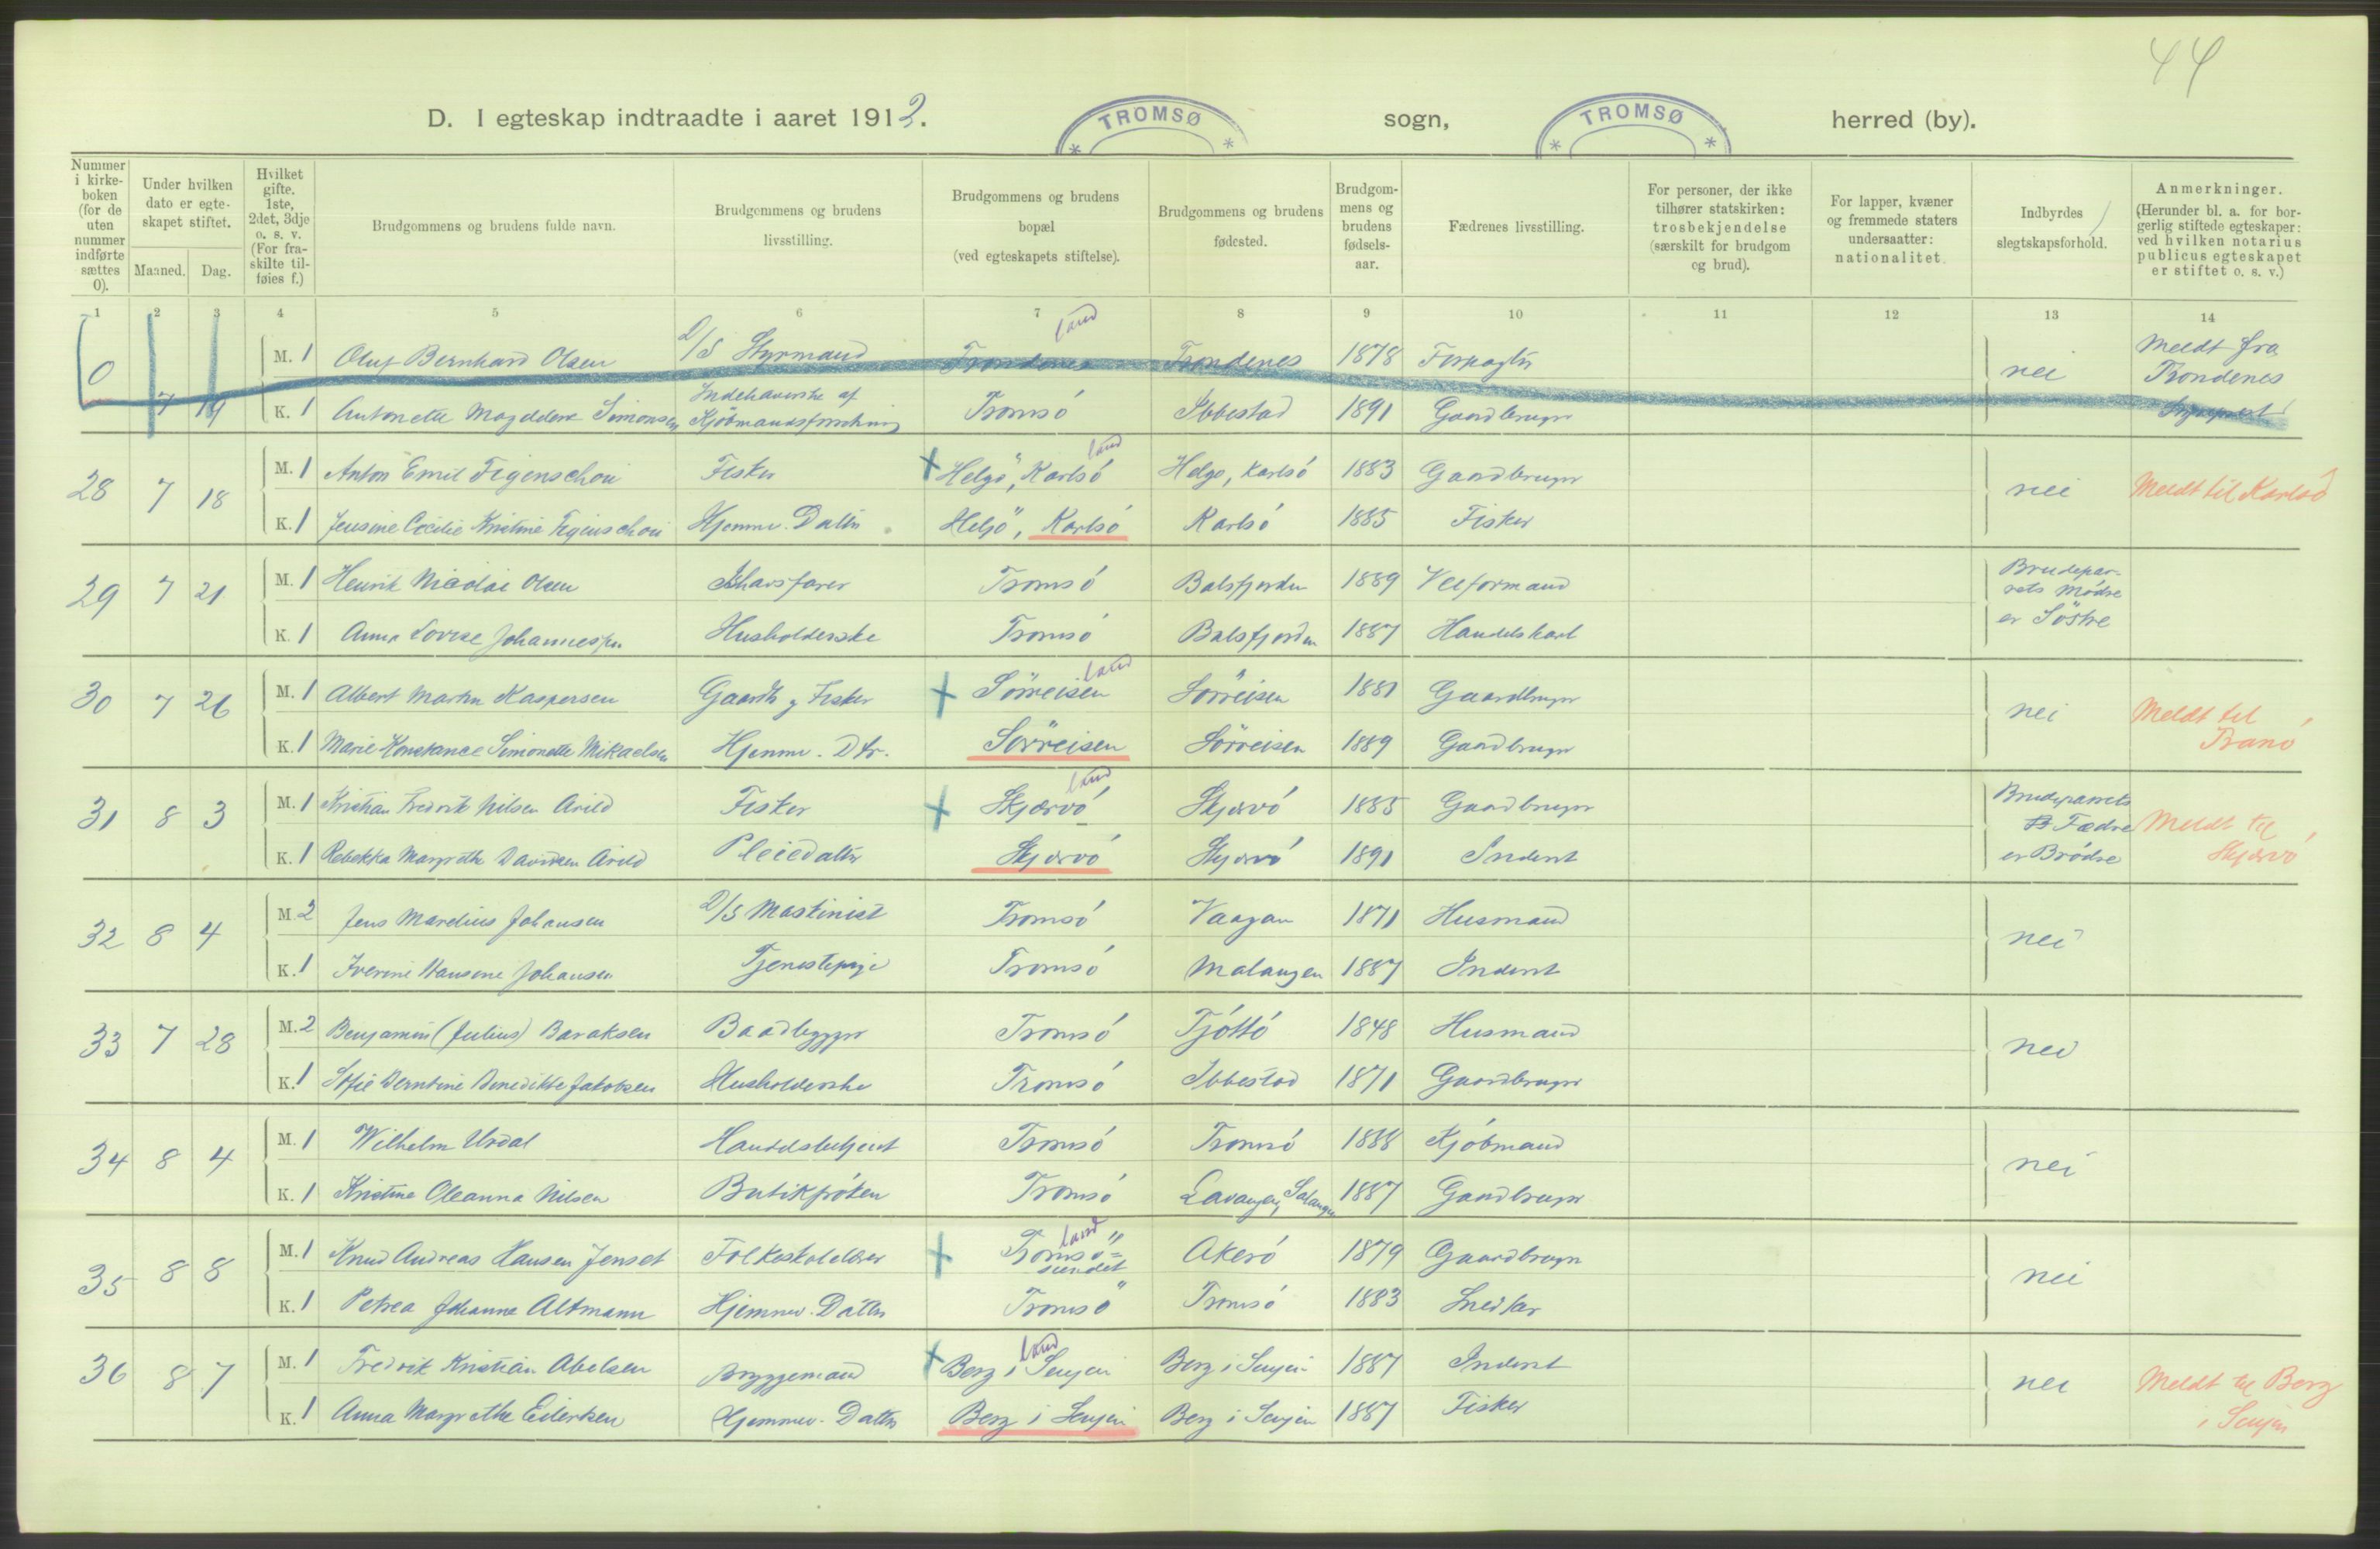 44
D. I egteskap indtraadte i aaret 1912. TROMSØ sogn, TROMSØ herred (by).
Nummer i kirke-boken (for de uten nummer indførte sættes 0).
Under hvilken dato er egte-skapet stiftet.
Maaned. Dag.
Hvilket gifte. 1ste, 2det, 3dje o. s. v. (For fra-skilte til-føies f.)
Brudgommens og brudens fulde navn.
Brudgommens og brudens livsstilling.
Brudgommens og brudens bopæl (ved egteskapets stiftelse).
Brudgommens og brudens fødested.
Brudgom-mens og brudens fødsels-aar.
Fædrenes livsstilling.
For personer, der ikke tilhører statskirken: trosbekjendelse (særskilt for brudgom og brud).
For lapper, kvæner og fremmede staters undersaatter: nationalitet.
Indbyrdes slegtskapsforhold.
Anmerkninger. (Herunder bl. a. for bor-gerlig stiftede egteskaper: ved hvilken notarius publicus egteskapet er stiftet o. s. v.)
1 2 3 4 5 6 7 8 9 10 11 12 13 14
land
0 7 19 M. 1 Oluf Bernhard Olsen D/S Styrmand Trondenes Trondenes 1878 Forpagter nei Meldt fra Trondenes
K. 1 Antonette Magdalene Simonsen Indehaverske af Kjöbmandsforretning Tromsö Ibbestad 1891 Gaardbruger
land
28 7 18 M. 1 Anton Emil Figenschou Fisker Helgö, Karlsö Helgö, Karlsö 1883 Gaardbruger nei Meldt til Karlsö
K. 1 Jensine Cecilie Kristine Figenschou Hjemmv. Datter Helgö, Karlsö Karlsö 1885 Fisker
29 7 21 M. 1 Henrik Nicolai Olsen Ishavsfarer Tromsö Balsfjorden 1889 Veiformand Brudepar-rets Mödre er Söstre
K. 1 Anna Lovise Johannessen Husholderske Tromsö Balsfjorden 1887 Handelskarl
land
30 7 26 M. 1 Albert Martin Kaspersen Gaardb. og Fisker Sörreisen Sörreisen 1881 Gaardbruger nei Meldt til Tranö
K. 1 Marie Konstance Simonette Mikaelsen Hjemmv. Dtr. Sörreisen Sörreisen 1889 Gaardbruger
land
31 8 3 M. 1 Kristian Fredrik Nilsen Arild Fisker Skjærvö Skjærvö 1885 Gaardbruger Brudeparrets Fædre er Brödre Meldt til Skjærvö
K. 1 Rebekka Margrethe Davidsen Arild Pleiedatter Skjærvö Skjærvö 1891 Inderst
32 8 4 M. 2 Jens Marelius Johansen D/S Maskinist Tromsö Vaagan 1871 Husmand nei
K. 1 Iverine Hansine Johansen Tjenestepige Tromsö Malangen 1887 Inderst
33 7 28 M. 2 Benjamin (Julius) Baraksen Baadbygger Tromsö Tjöttö 1848 Husmand nei
K. 1 Sofie Berntine Benedikte Jakobsen Husholderske Tromsö Ibbestad 1871 Gaardbruger
34 8 4 M. 1 Wilhelm Urdal Handelsbetjent Tromsö Tromsö 1888 Kjöbmand nei
K. 1 Kristine Oleanna Nilsen Butikfröken Tromsö Lavangen, Salangen 1887 Gaardbruger
land
35 8 8 M. 1 Knud Andreas Hansen Jenset Folkeskolelærer Tromsö=sundet Akerö 1879 Gaardbruger nei
K. 1 Petrea Johanna Altmann Hjemmv. Datter Tromsö Tromsö 1883 Snedker
land
36 8 7 M. 1 Fredrik Kristian Abelsen Bryggemand Berg i Senjen Berg i Senjen 1887 Inderst nei Meldt til Berg i Senjen
K. 1 Anna Margrethe Eilertsen Hjemmev. Datter Berg i Senjen Berg i Senjen 1887 Fisker